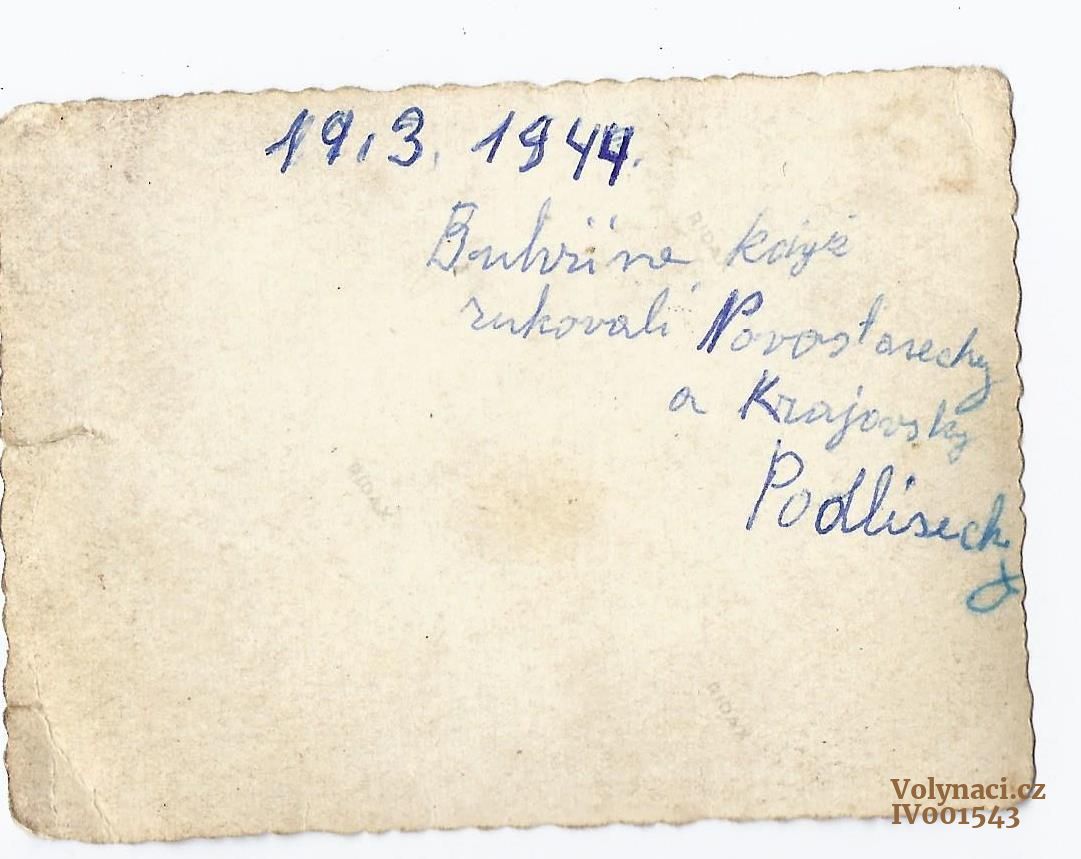 19.3. 1944.
Buhříně když
rukovali Novostavechy
a Krajovsky
Podlisecky
RIDAX
RIDAX
RIDAX
Volynaci.cz
IV001543